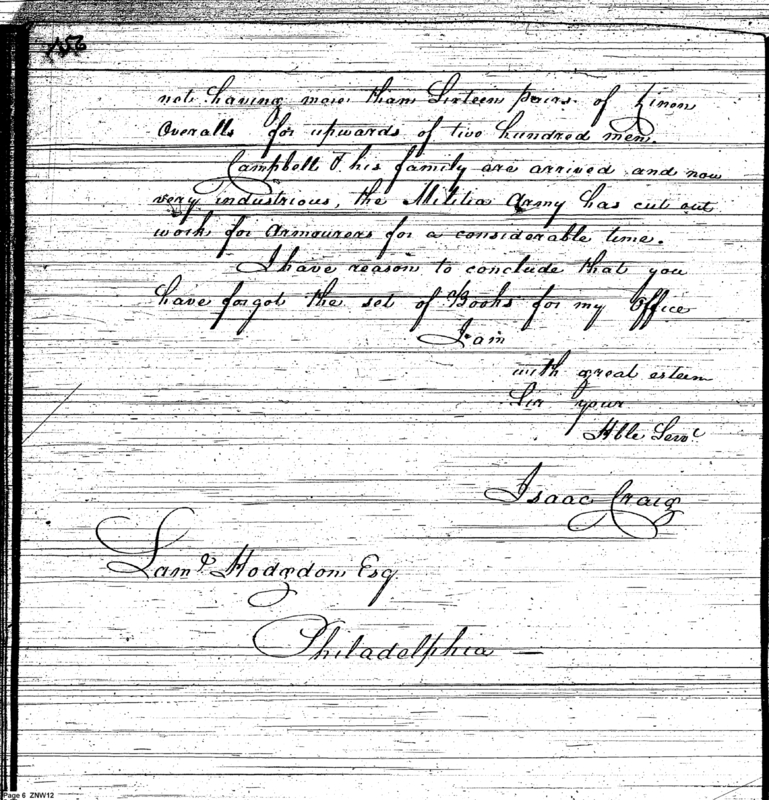 not having more than Sixteen pairs of Linen
Overalls for upwards of two hundred men.
Campbell & his family are arrived and now
very industrious, the Militia Army has cut out
work for Armourers for a considerable time.
I have reason to conclude that you
have forgot the set of Books for my Office
I am
with great esteem
Sir your
Hble Servt
Isaac Craig
Saml Hodgdon Esq
Philadelphia —
Page 6 ZNW12